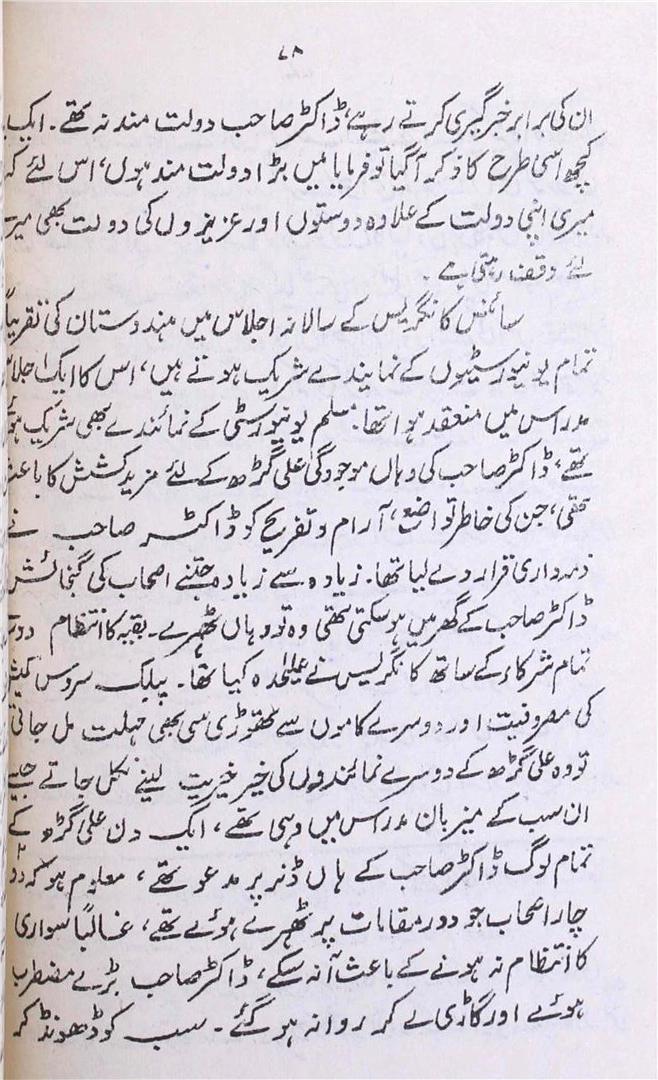 ۷۸
ان کی برابر خبر گیری کرتے رہے، ڈاکٹر صاحب دولت مند نہ تھے۔ ایک
کچھ اسی طرح کا ذکر آگیا تو فرمایا میں بڑا دولت مند ہوں، اس لئے کہ
میری اپنی دولت کے علاوہ دوستوں اور عزیزوں کی دولت بھی میرے
لئے وقف رہتی ہے۔
سائنس کانگریس کے سالانہ اجلاس میں ہندوستان کی تقریباً
تمام یونیورسٹیوں کے نمایندے شریک ہوتے ہیں، اس کا ایک اجلاس
مدراس میں منعقد ہوا تھا۔ مسلم یونیورسٹی کے نمائندے بھی شریک ہوئے
تھے، ڈاکٹر صاحب کی وہاں موجودگی علی گڑھ کے لئے مزید کشش کا باعث
تھی، جن کی خاطر تواضع، آرام و تفریح کو ڈاکٹر صاحب نے
ذمہ داری قرار دے لیا تھا۔ زیادہ سے زیادہ جتنے اصحاب کی گنجائش
ڈاکٹر صاحب کے گھر میں ہو سکتی تھی وہ تو وہاں ٹھہرے۔ بقیہ کا انتظام
تمام شرکاء کے ساتھ کانگریس نے علیٰحدہ کیا تھا۔ پبلک سروس کمیشن
کی مصروفیت اور دوسرے کاموں سے تھوڑی سی بھی مہلت مل جاتی
تو وہ علی گڑھ کے دوسرے نمائندوں کی خیر خیریت لینے نکل جاتے جیسے
ان سب کے میزبان مدراس میں وہی تھے، ایک دن علی گڑھ کے
تمام لوگ ڈاکٹر صاحب کے ہاں ڈنر پر مدعو تھے، معلوم ہوا کہ دو
چار اصحاب جو دور مقامات پر ٹھہرے ہوئے تھے، غالباً سواری
کا انتظام نہ ہونے کے باعث آ نہ سکے، ڈاکٹر صاحب بڑے مضطرب
ہوئے اور گاڑی لے کر روانہ ہو گئے۔ سب کو ڈھونڈ کر